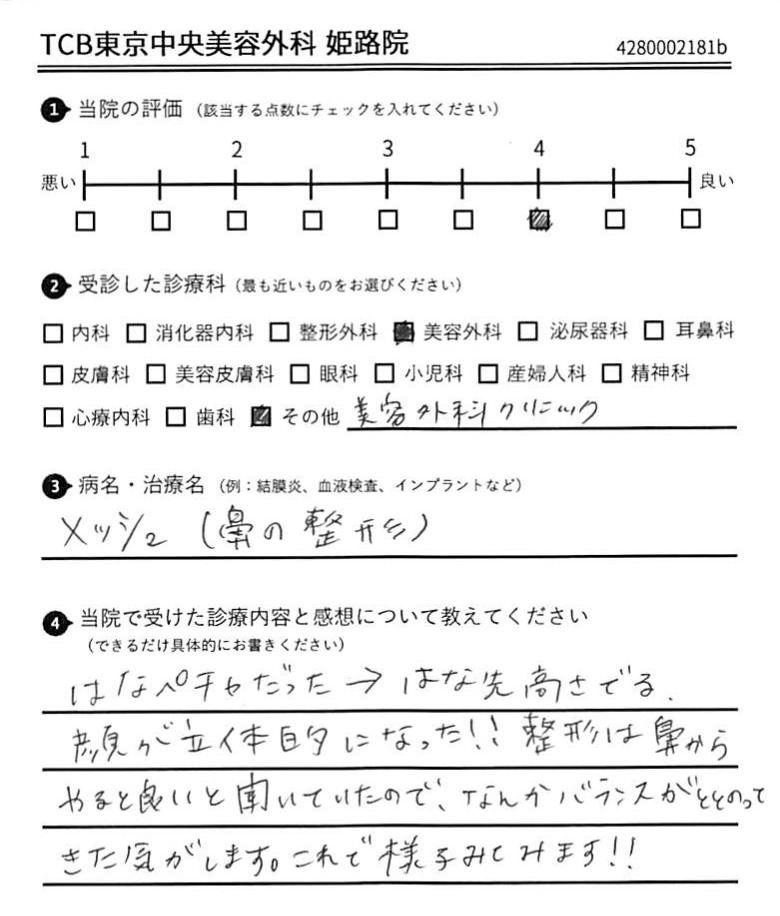 TCB東京中央美容外科 姫路院 4280002181b
1 当院の評価 (該当する点数にチェックを入れてください)
1 2 3 4 5
悪い 良い
2 受診した診療科 (最も近いものをお選びください)
内科 消化器内科 整形外科 美容外科 泌尿器科 耳鼻科
皮膚科 美容皮膚科 眼科 小児科 産婦人科 精神科
心療内科 歯科 その他 美容外科クリニック
3 病名・治療名 (例:結膜炎、血液検査、インプラントなど)
メッシュ (鼻の整形)
4 当院で受けた診療内容と感想について教えてください
(できるだけ具体的にお書きください)
はなペチャだった→はな先高さでる.
顔が立体的になった!! 整形は鼻から
やると良いと聞いていたので、なんかバランスがととのって
きた気がします。これで様子みてみます!!